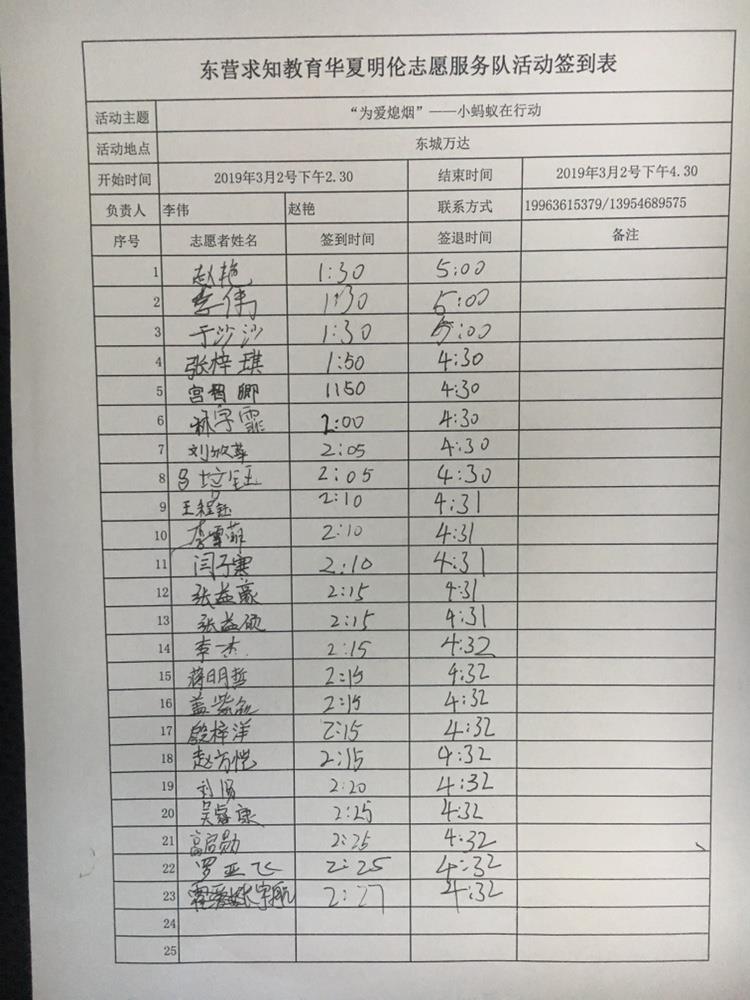 东营求知教育华夏明伦志愿服务队活动签到表
活动主题 “为爱熄烟”——小蚂蚁在行动
活动地点 东城万达
开始时间 2019年3月2号下午2.30 结束时间 2019年3月2号下午4.30
负责人 李伟 赵艳 联系方式 19963615379/13954689575
序号 志愿者姓名 签到时间 签退时间 备注
1 赵艳 1:30 5:00
2 李伟 1:30 5:00
3 于沙沙 1:30 5:00
4 张梓琪 1:50 4:30
5 宫 卿 1150 4:30
6 林宇霏 2:00 4:30
7 刘 2:05 4:30
8 吕 钰 2:05 4:30
9 王程钰 2:10 4:31
10 李雪菲 2:10 4:31
11 闫子寒 2:10 4:31
12 张益豪 2:15 4:31
13 张益硕 2:15 4:31
14 李杰 2:15 4:32
15 蒋明哲 2:15 4:32
16 盖紫 2:15 4:32
17 殷梓洋 2:15 4:32
18 赵方恺 2:15 4:32
19 刘 2:20 4:32
20 吴睿康 2:25 4:32
21 高启勋 2:25 4:32
22 罗亚飞 2:25 4:32
23 张宇航 2:27 4:32
24
25